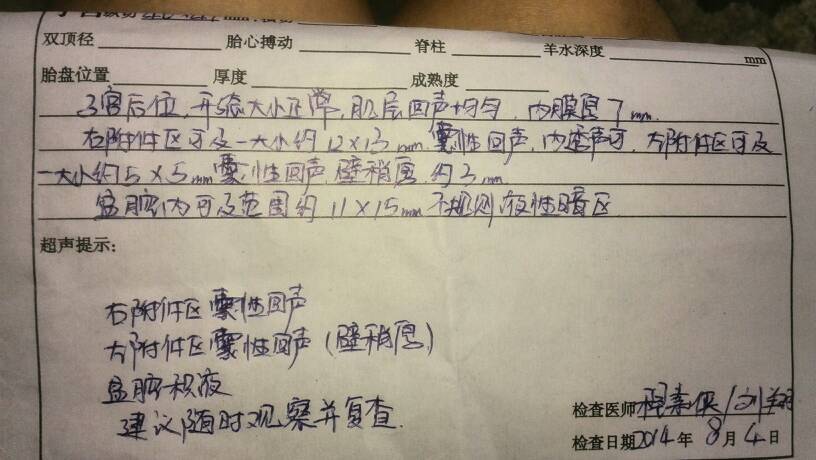 双顶径 胎心搏动 脊柱 羊水深度 mm
胎盘位置 厚度 成熟度
子宫后位,形态大小正常,肌层回声均匀,内膜厚7mm.
右附件区可及一大小约12×13mm囊性回声,内透声可,左附件区可及
一大小约5×5mm囊性回声,壁稍厚,约3mm
盆腔内可及范围约11×15mm不规则液性暗区
超声提示:
右附件区囊性回声
左附件区囊性回声(壁稍厚)
盆腔积液
建议随时观察并复查.
检查医师
检查日期2014年8月4日